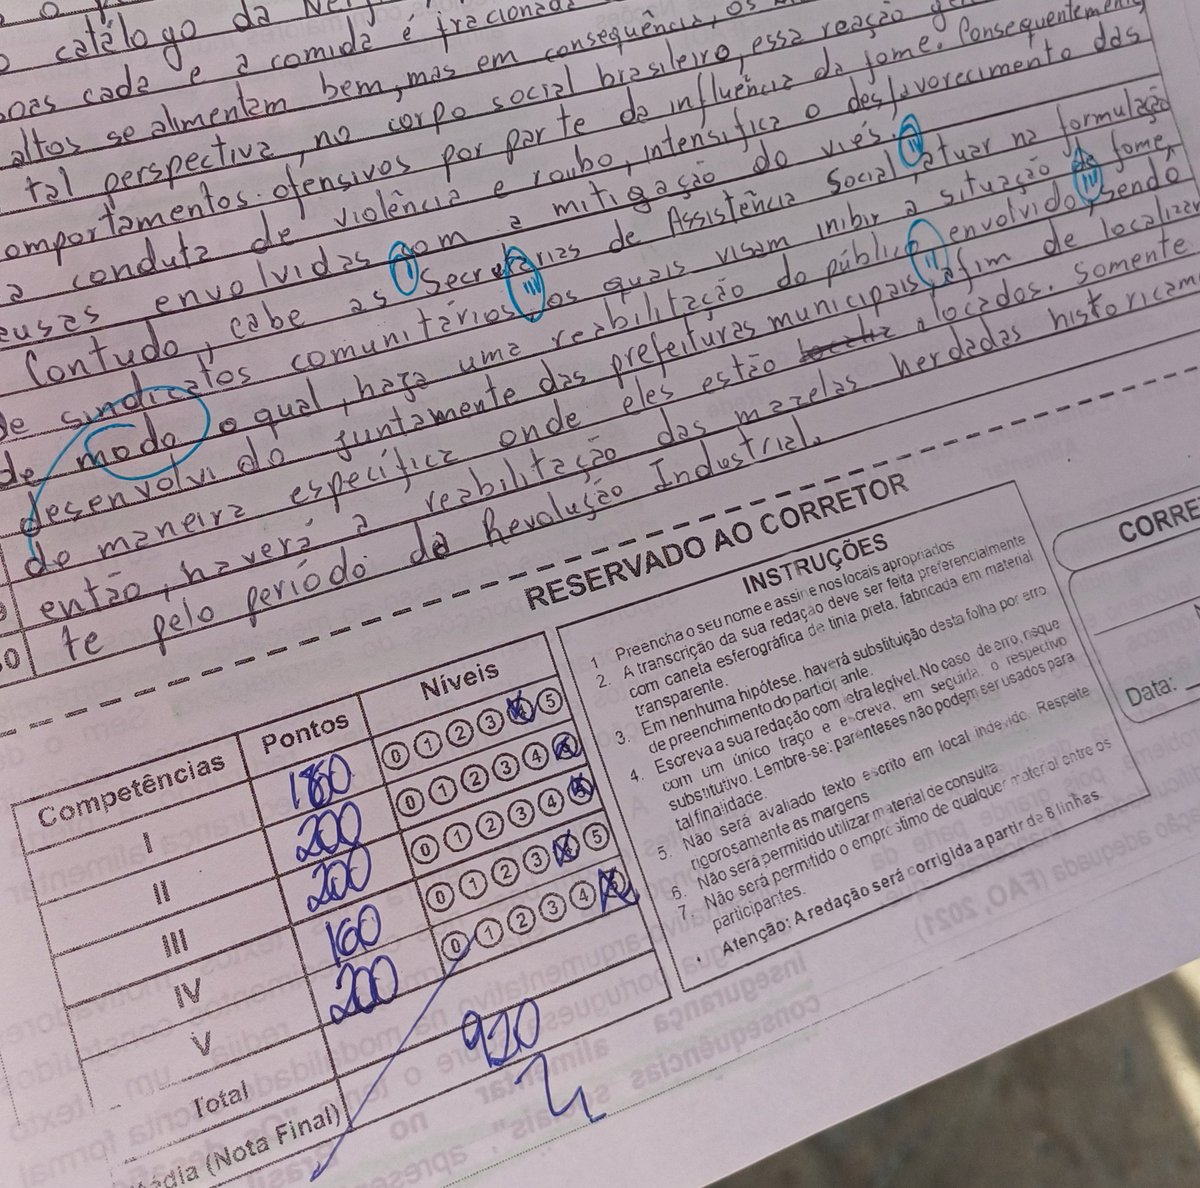 o catálogo da
soas cada e a comida é fracionada
altos se alimentam bem, mas em consequência, os
tal perspectiva, no corpo social brasileiro, essa reação
omportamentos ofensivos por parte da influência da fome. Consequentemente,
a conduta de violência e roubo, intensifica o desfavorecimento das
eusas envolvidas com a mitigação do viés.
Contudo, cabe as Secretarias de Assistência Social, atuar na formulação
de sindicatos comunitários, os quais visam inibir a situação de fome,
de modo o qual, haja uma reabilitação do público envolvido, sendo
desenvolvido juntamente das prefeituras municipais, afim de localizar
de maneira específica onde eles estão alocados. Somente
então, haverá a reabilitação das mazelas herdadas historicam
te pelo período da Revolução Industrial.
RESERVADO AO CORRETOR
Competências Pontos Níveis
I 160 0 1 2 3 4 5
II 200 0 1 2 3 4 5
III 200 0 1 2 3 4 5
IV 160 0 1 2 3 4 5
V 200 0 1 2 3 4 5
Total 920
Média (Nota Final)
INSTRUÇÕES
1. Preencha o seu nome e assine nos locais apropriados
2. A transcrição da sua redação deve ser feita preferencialmente
com caneta esferográfica de tinta preta, fabricada em material
transparente.
3. Em nenhuma hipótese, haverá substituição desta folha por erro
de preenchimento do participante.
4. Escreva a sua redação com letra legível. No caso de erro, risque
com um único traço e escreva, em seguida, o respectivo
substitutivo. Lembre-se: parenteses não podem ser usados para
tal finalidade.
5. Não será avaliado texto escrito em local indevido. Respeite
rigorosamente as margens.
6. Não será permitido utilizar material de consulta.
7. Não será permitido o empréstimo de qualquer material entre os
participantes.
• Atenção: A redação será corrigida a partir de 8 linhas.
CORRE
Data: